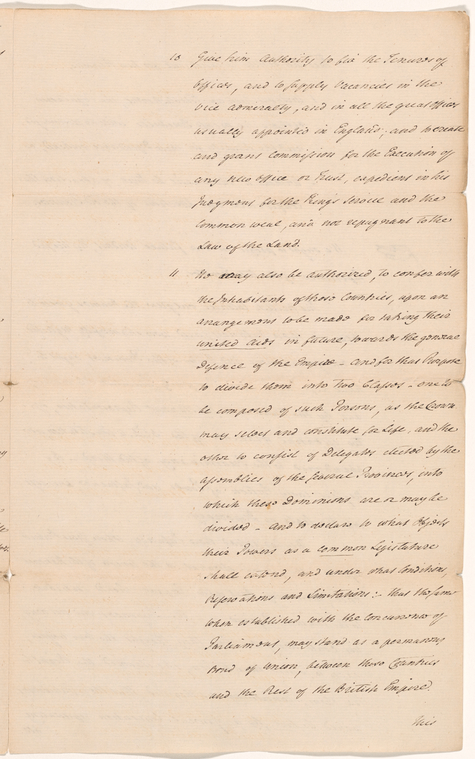 10 Give him Authority to fix the Tenures of
Offices, and to supply Vacancies in the
Vice admiralty, and in all the great offices
usually appointed in England; and to create
and grant Commission for the Execution of
any new Office or Trust, expedient in his
Judgment for the Kings Service and the
Common weal, and not repugnant to the
Law of the Land.
11 He may also be authorized, to confer with
the Inhabitants of those Countries, upon an
arrangement to be made for taking their
united Aids in future, towards the general
Defence of the Empire – and for that Purpose
to divide them into Two Classes – one to
be composed of such Persons, as the Crown
may select and constitute for Life, and the
other to consist of Delegates elected by the
assemblies of the several Provinces, into
which these Dominions are or may be
divided – and to declare to what Objects
their Powers as a common Legislature
shall extend, and under what Conditions,
Reservations and Limitations: – that the same
when established with the Concurrence of
Parliament, may stand as a permanent
Bond of Union, between those Countries
and the Rest of the British Empire.
This